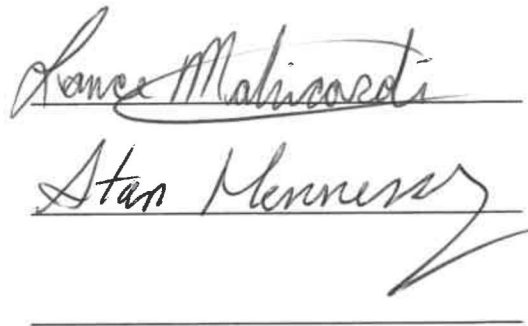 Lance Malucardi
Stan Hennessy